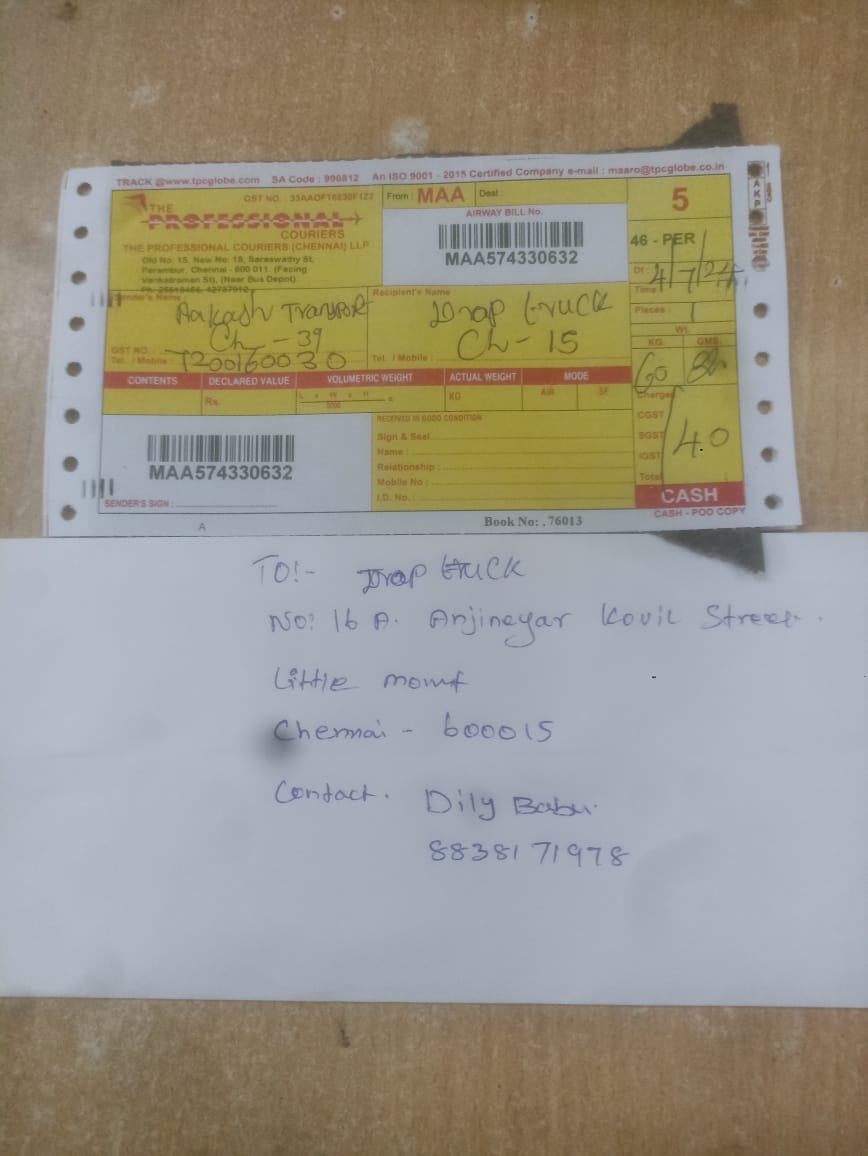 TRACK @www.tpcglobe.com SA Code : 996812 An ISO 9001 - 2015 Certified Company e-mail : maaro@tpcglobe.co.in
THE
PROFESSIONAL
COURIERS
THE PROFESSIONAL COURIERS (CHENNAI) LLP
Old No: 15, New No: 18, Saraswathy St,
Perambur, Chennai - 600 011. (Facing
Venkatraman St), (Near Bus Depot)
From : MAA Dest :
AIRWAY BILL No.
MAA574330632
5
46 - PER
Dt : 4/7/24
Time :
Pieces : 1
Wt.
KG. GMS.
Sender's Name
Aakash Transport
Ch - 39
GST NO. :
Tel. / Mobile : 7200160030
Recipient's Name
Drop truck
Ch - 15
Tel. / Mobile :
CONTENTS DECLARED VALUE VOLUMETRIC WEIGHT ACTUAL WEIGHT MODE
Rs. L x W x H = KG AIR SF
5000
Charges
CGST
SGST
IGST
Total
40
MAA574330632
SENDER'S SIGN :
RECEIVED IN GOOD CONDITION
Sign & Seal
Name :
Relationship :
Mobile No :
I.D. No. :
CASH
CASH - POD COPY
A Book No: . 76013
AKP
TO:- Drop truck
No: 16 A. Anjineyar Kovil Street.
Little mount
Chennai - 600015
Contact. Dily Babu.
8838171978